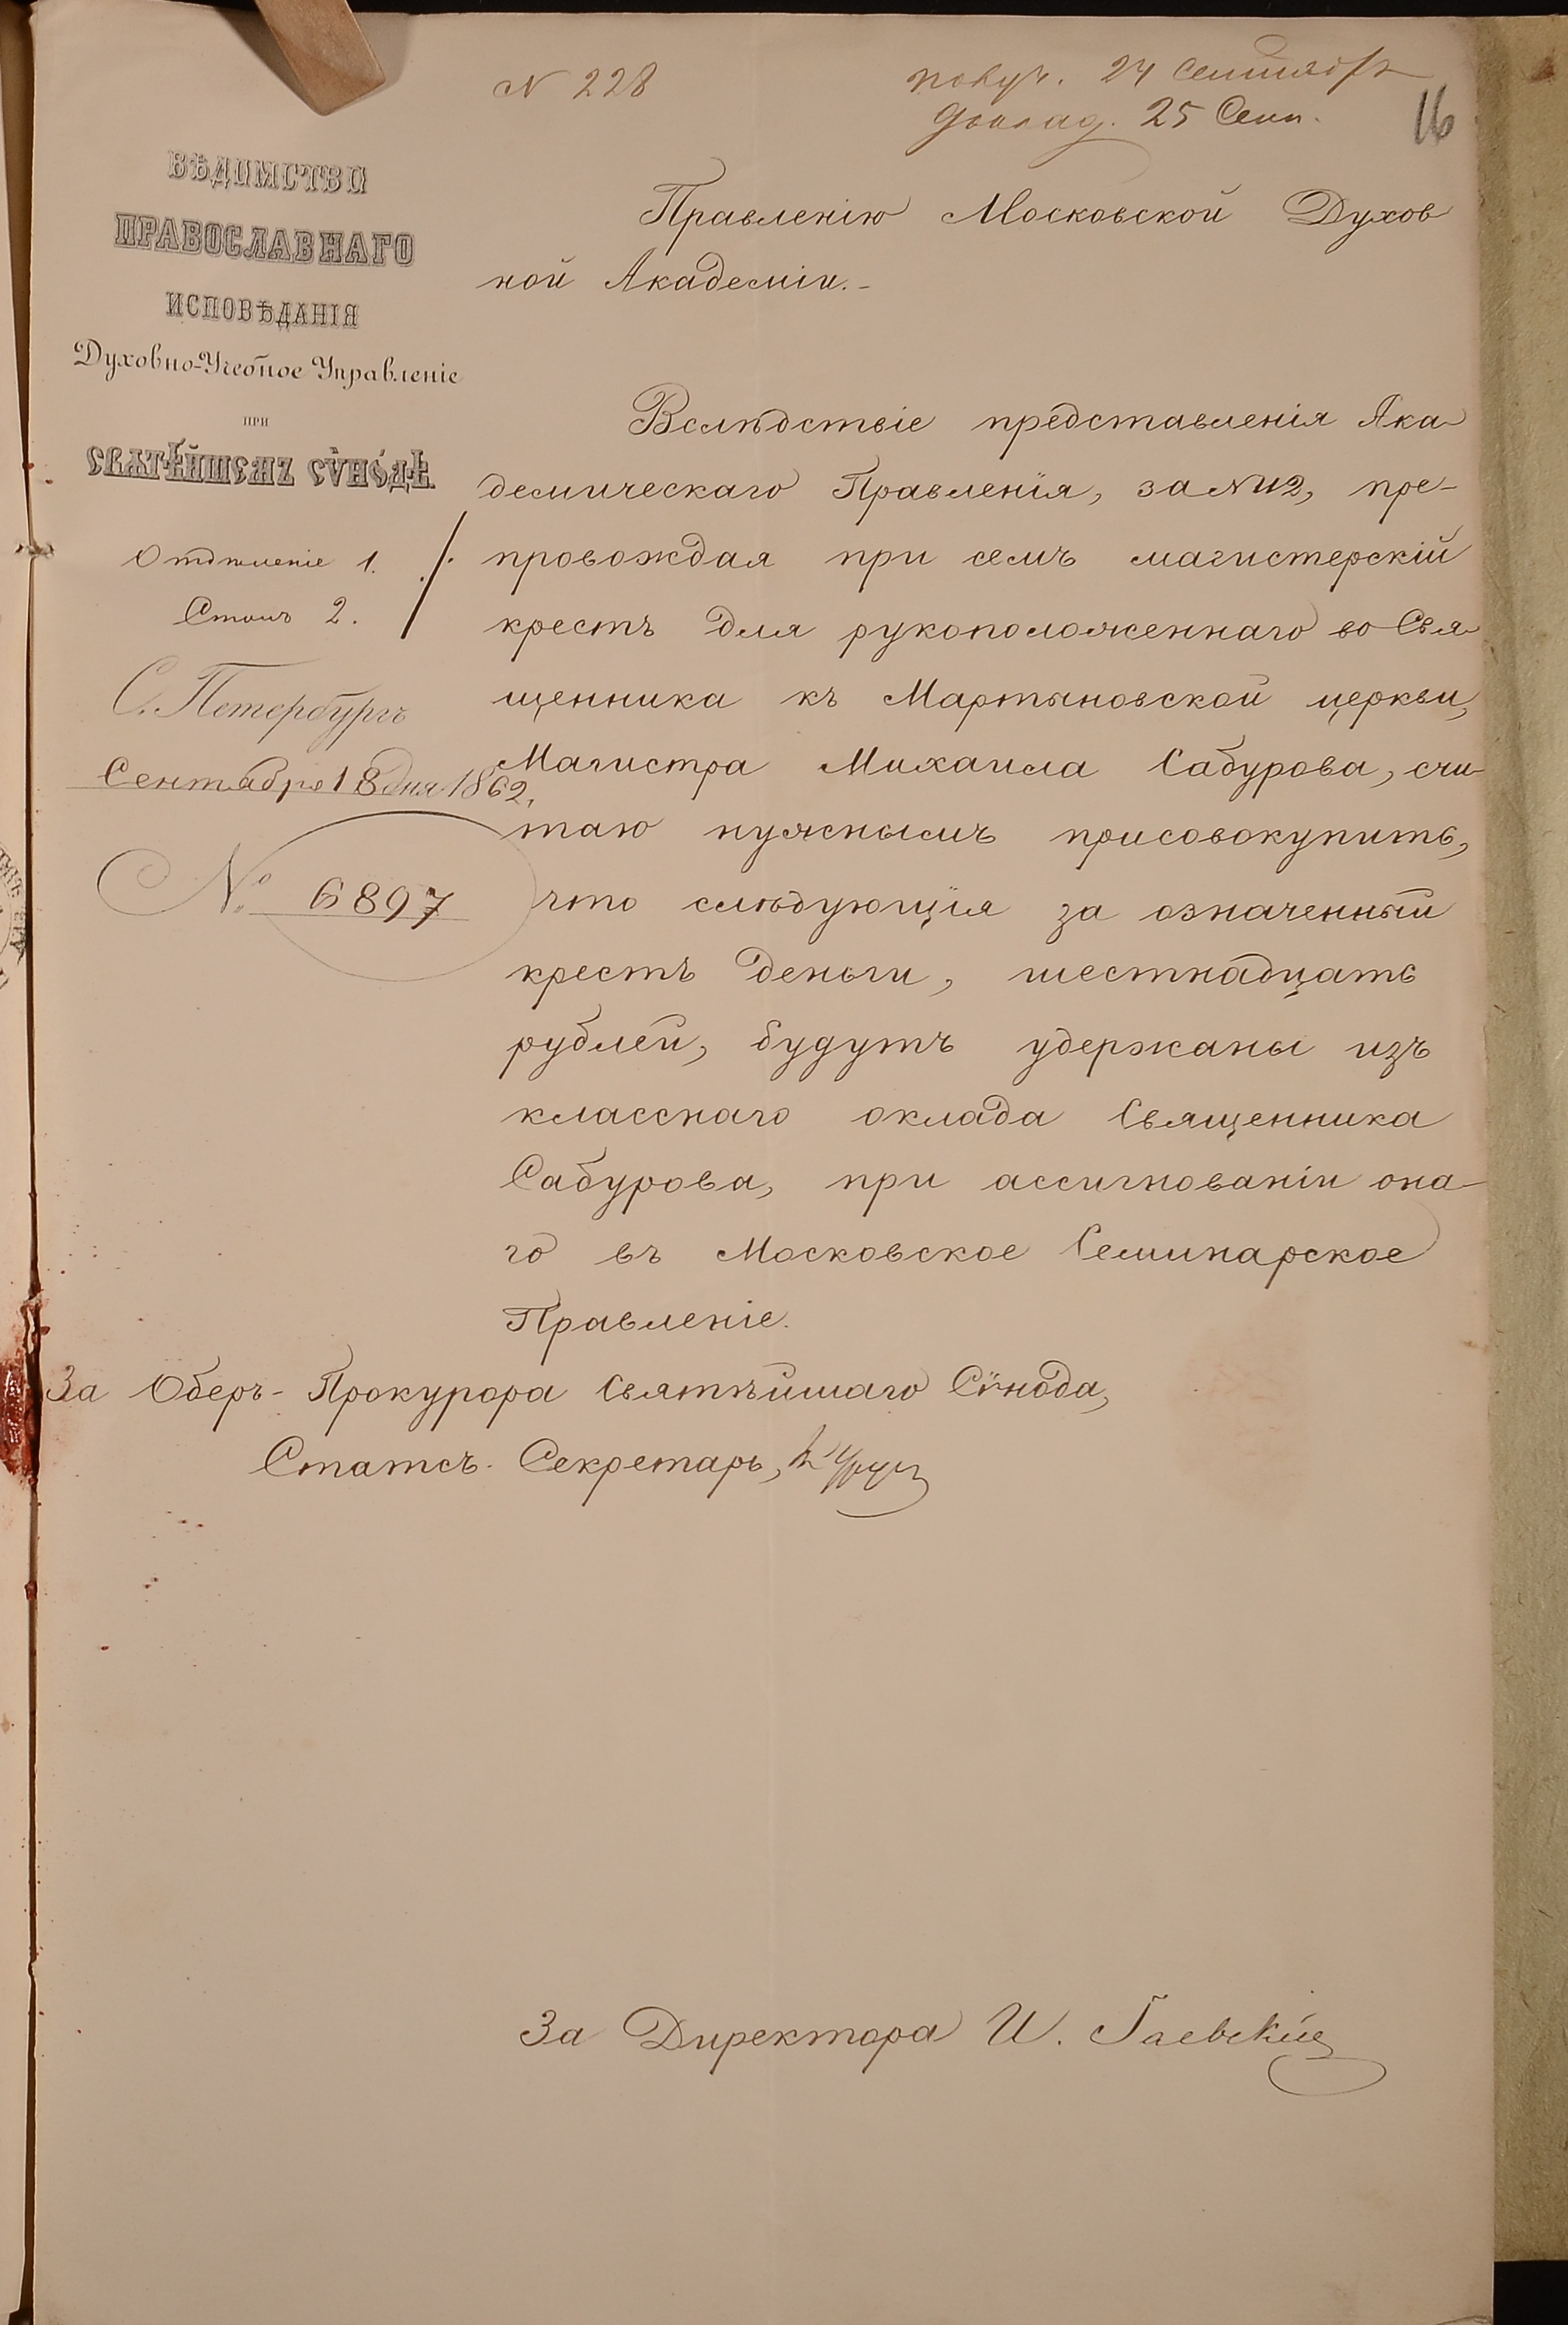 N 228
получ. 24 Сентября
доклад. 25 Сент.
16
ВѢДОМСТВО
ПРАВОСЛАВНАГО
ИСПОВѢДАНІЯ
Духовно-Учебное Управленіе
ПРИ
СВѦТѢ́ЙШЕМЪ СѴНО́ДѢ.
Отдѣленіе 1.
Столъ 2.
С. Петербургъ
Сентября 18 дня 1862.
№ 6897
Правленію Московской Духов
ной Академіи.-
Вслѣдствіе представленія Ака-
демическаго Правленія, за N 112, пре-
провождая при семъ магистерскій
крестъ для рукоположеннаго во Свя-
щенника къ Мартыновской церкви,
Магистра Михаила Сабурова, счи-
таю нужнымъ присовокупить,
что слѣдующія за означенный
крестъ деньги, шестнадцать
рублей, будутъ удержаны изъ
класснаго оклада Священника
Сабурова, при ассигнованіи она-
го въ Московское Семинарское
Правленіе.
За Оберъ-Прокурора Святѣйшаго Сѵнода,
Статсъ-Секретарь,
За Директора И. Гаевскій